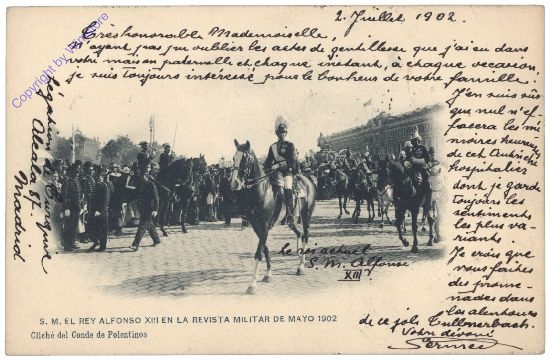 2. Juillet 1902.
Très honorable Mademoiselle,
N'ayant pas pu oublier les actes de gentillesse que j'ai eu dans
votre maison paternelle et chaque instant, à chaque occasion,
je suis toujours interessé pour le bonheur de votre famille.
J'en suis sûr
que nul n'ef-
facera les mé-
moires heureuses
de cet Autriche
hospitalier
dont je garde
toujours les
sentiments
les plus va-
riants.
Je crois que
vous faites
des prome-
nades dans
les alentours
de ce joli Tullnerbach.
Votre dévoué
Légation de Turquie
Alcala 57.
Madrid
Le roi actuel
S. M. Alfonse
XIII
S. M. EL REY ALFONSO XIII EN LA REVISTA MILITAR DE MAYO 1902
Cliché del Conde de Polentinos
Copyright by